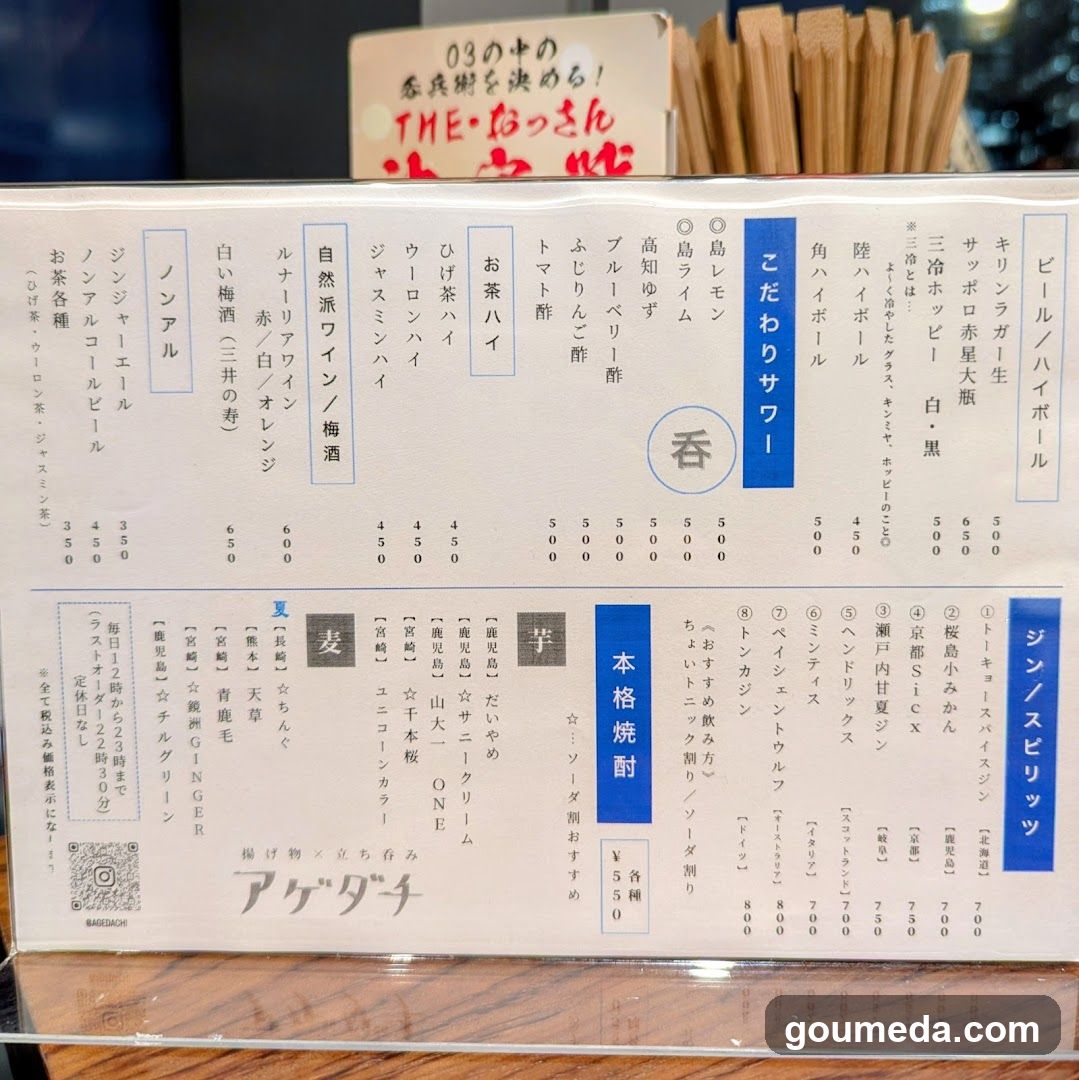 03の中の
呑兵衛を決める!
THE・おっさん
ビール/ハイボール
キリンラガー生 500
サッポロ赤星大瓶 650
三冷ホッピー 白・黒 500
※三冷とは…
よ〜く冷やしたグラス、キンミヤ、ホッピーのこと◎
陸ハイボール 450
角ハイボール 500
こだわりサワー
◎島レモン 500
◎島ライム 500
高知ゆず 500
ブルーベリー酢 500
ふじりんご酢 500
トマト酢 500
呑
お茶ハイ
ひげ茶ハイ 450
ウーロンハイ 450
ジャスミンハイ 450
自然派ワイン/梅酒
ルナーリアワイン
赤/白/オレンジ 600
白い梅酒(三井の寿) 650
ノンアル
ジンジャーエール 350
ノンアルコールビール 450
お茶各種 350
(ひげ茶・ウーロン茶・ジャスミン茶)
ジン/スピリッツ
①トーキョースパイスジン [北海道] 700
②桜島小みかん [鹿児島] 700
④京都Sicx [京都] 750
③瀬戸内甘夏ジン [岐阜] 750
⑤ヘンドリックス [スコットランド] 700
⑥ミンティス [イタリア] 700
⑦ペイシェントウルフ [オーストラリア] 800
⑧トンカジン [ドイツ] 800
《おすすめ飲み方》
ちょいトニック割り/ソーダ割り
本格焼酎
各種
¥550
☆…ソーダ割おすすめ
芋
[鹿児島] だいやめ
[鹿児島] ☆サニークリーム
[鹿児島] 山大一 ONE
[宮崎] ☆千本桜
[宮崎] ユニコーンカラー
麦
夏
[長崎] ☆ちんぐ
[熊本] 天草
[宮崎] 青鹿毛
[宮崎] ☆鏡洲GINGER
[鹿児島] ☆チルグリーン
揚げ物×立ち呑み
アゲダチ
毎日12時から23時まで
(ラストオーダー22時30分)
定休日なし
※全て税込み価格表示にな
@AGEDACHI
goumeda.com